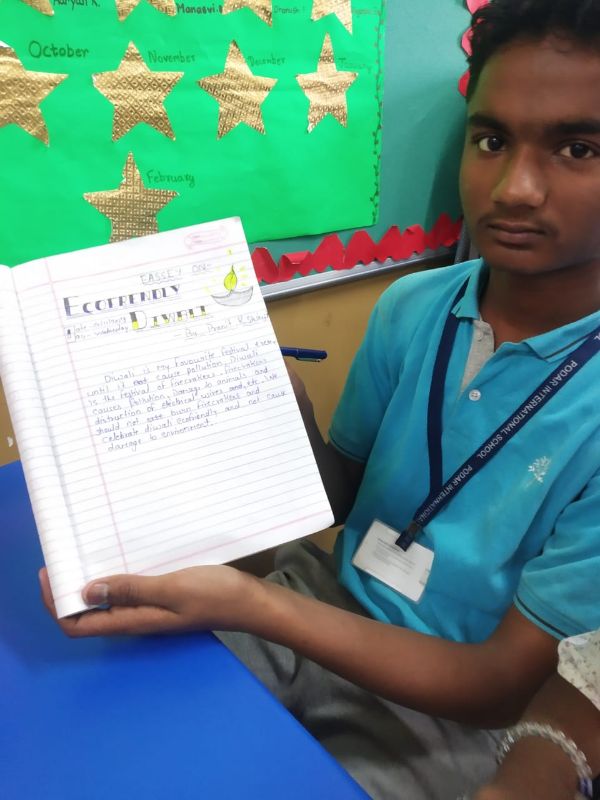 Aaryan K.
Manasvi.B
October
November
December
February
EASSEY ON:-
ECOFRENDLY
DIVALI
Diwali is my favourite festival
until it not cause pollution. Diwali
is the festival of firecrakers. firecrakers
causes pollution, Damage to animals and
distruction of electrical wires and etc. We
should not burn firecrakers and
celebrate diwali Ecofriendly and not cause
damage to enviorment.
PODAR INTERNATIONAL SCHOOL
PODAR INTERNATIONAL